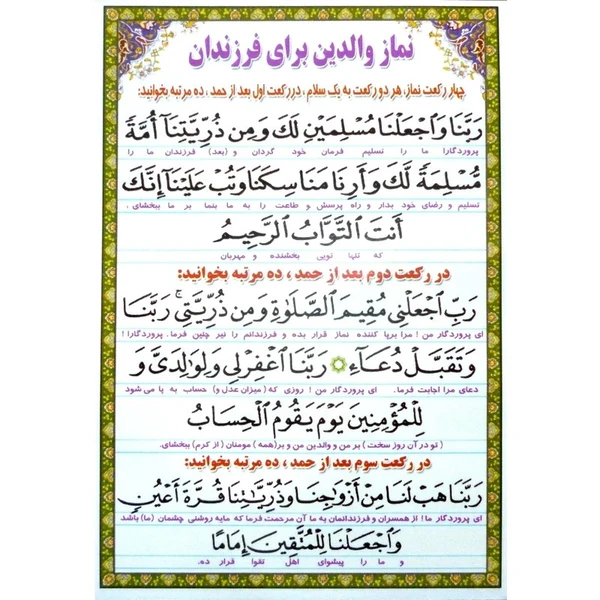 نماز والدین برای فرزندان
چهار رکعت نماز، هر دو رکعت به یک سلام، در رکعت اول بعد از حمد، ده مرتبه بخوانید:
رَبَّنَا وَاجْعَلْنَا مُسْلِمَيْنِ لَكَ وَمِن ذُرِّيَّتِنَا أُمَّةً
پروردگارا ما را تسلیم فرمان خود گردان و (بعد) فرزندان ما را
مُّسْلِمَةً لَّكَ وَأَرِنَا مَنَاسِكَنَا وَتُبْ عَلَيْنَا إِنَّكَ
تسلیم و رضای خود بدار و راه پرسش و طاعت را به ما بنما بر ما ببخشای.
أَنتَ التَّوَّابُ الرَّحِيمُ
که تنها تویی بخشنده و مهربان
در رکعت دوم بعد از حمد، ده مرتبه بخوانید:
رَبِّ اجْعَلْنِي مُقِيمَ الصَّلَوٰةِ وَمِن ذُرِّيَّتِي ۚ رَبَّنَا
ای پروردگار من! مرا برپا کننده نماز قرار بده و فرزندانم را نیز چنین فرما. پروردگارا!
وَتَقَبَّلْ دُعَآءِ ۞ رَبَّنَا اغْفِرْ لِي وَلِوَالِدَيَّ وَ
دعای مرا اجابت فرما. ای پروردگار من! روزی که (میزان عدل و) حساب به پا می شود
لِلْمُؤْمِنِينَ يَوْمَ يَقُومُ الْحِسَابُ
(تو در آن روز سخت) بر من و والدین من و بر(همه) مومنان (از کرم) ببخشای.
در رکعت سوم بعد از حمد، ده مرتبه بخوانید:
رَبَّنَا هَبْ لَنَا مِنْ أَزْوَاجِنَا وَذُرِّيَّاتِنَا قُرَّةَ أَعْيُنٍ
ای پروردگار ما! از همسران و فرزندانمان به ما آن مرحمت فرما که مایه روشنی چشمان (ما) باشد
وَاجْعَلْنَا لِلْمُتَّقِينَ إِمَامًا
و ما را پیشوای اهل تقوا قرار ده.